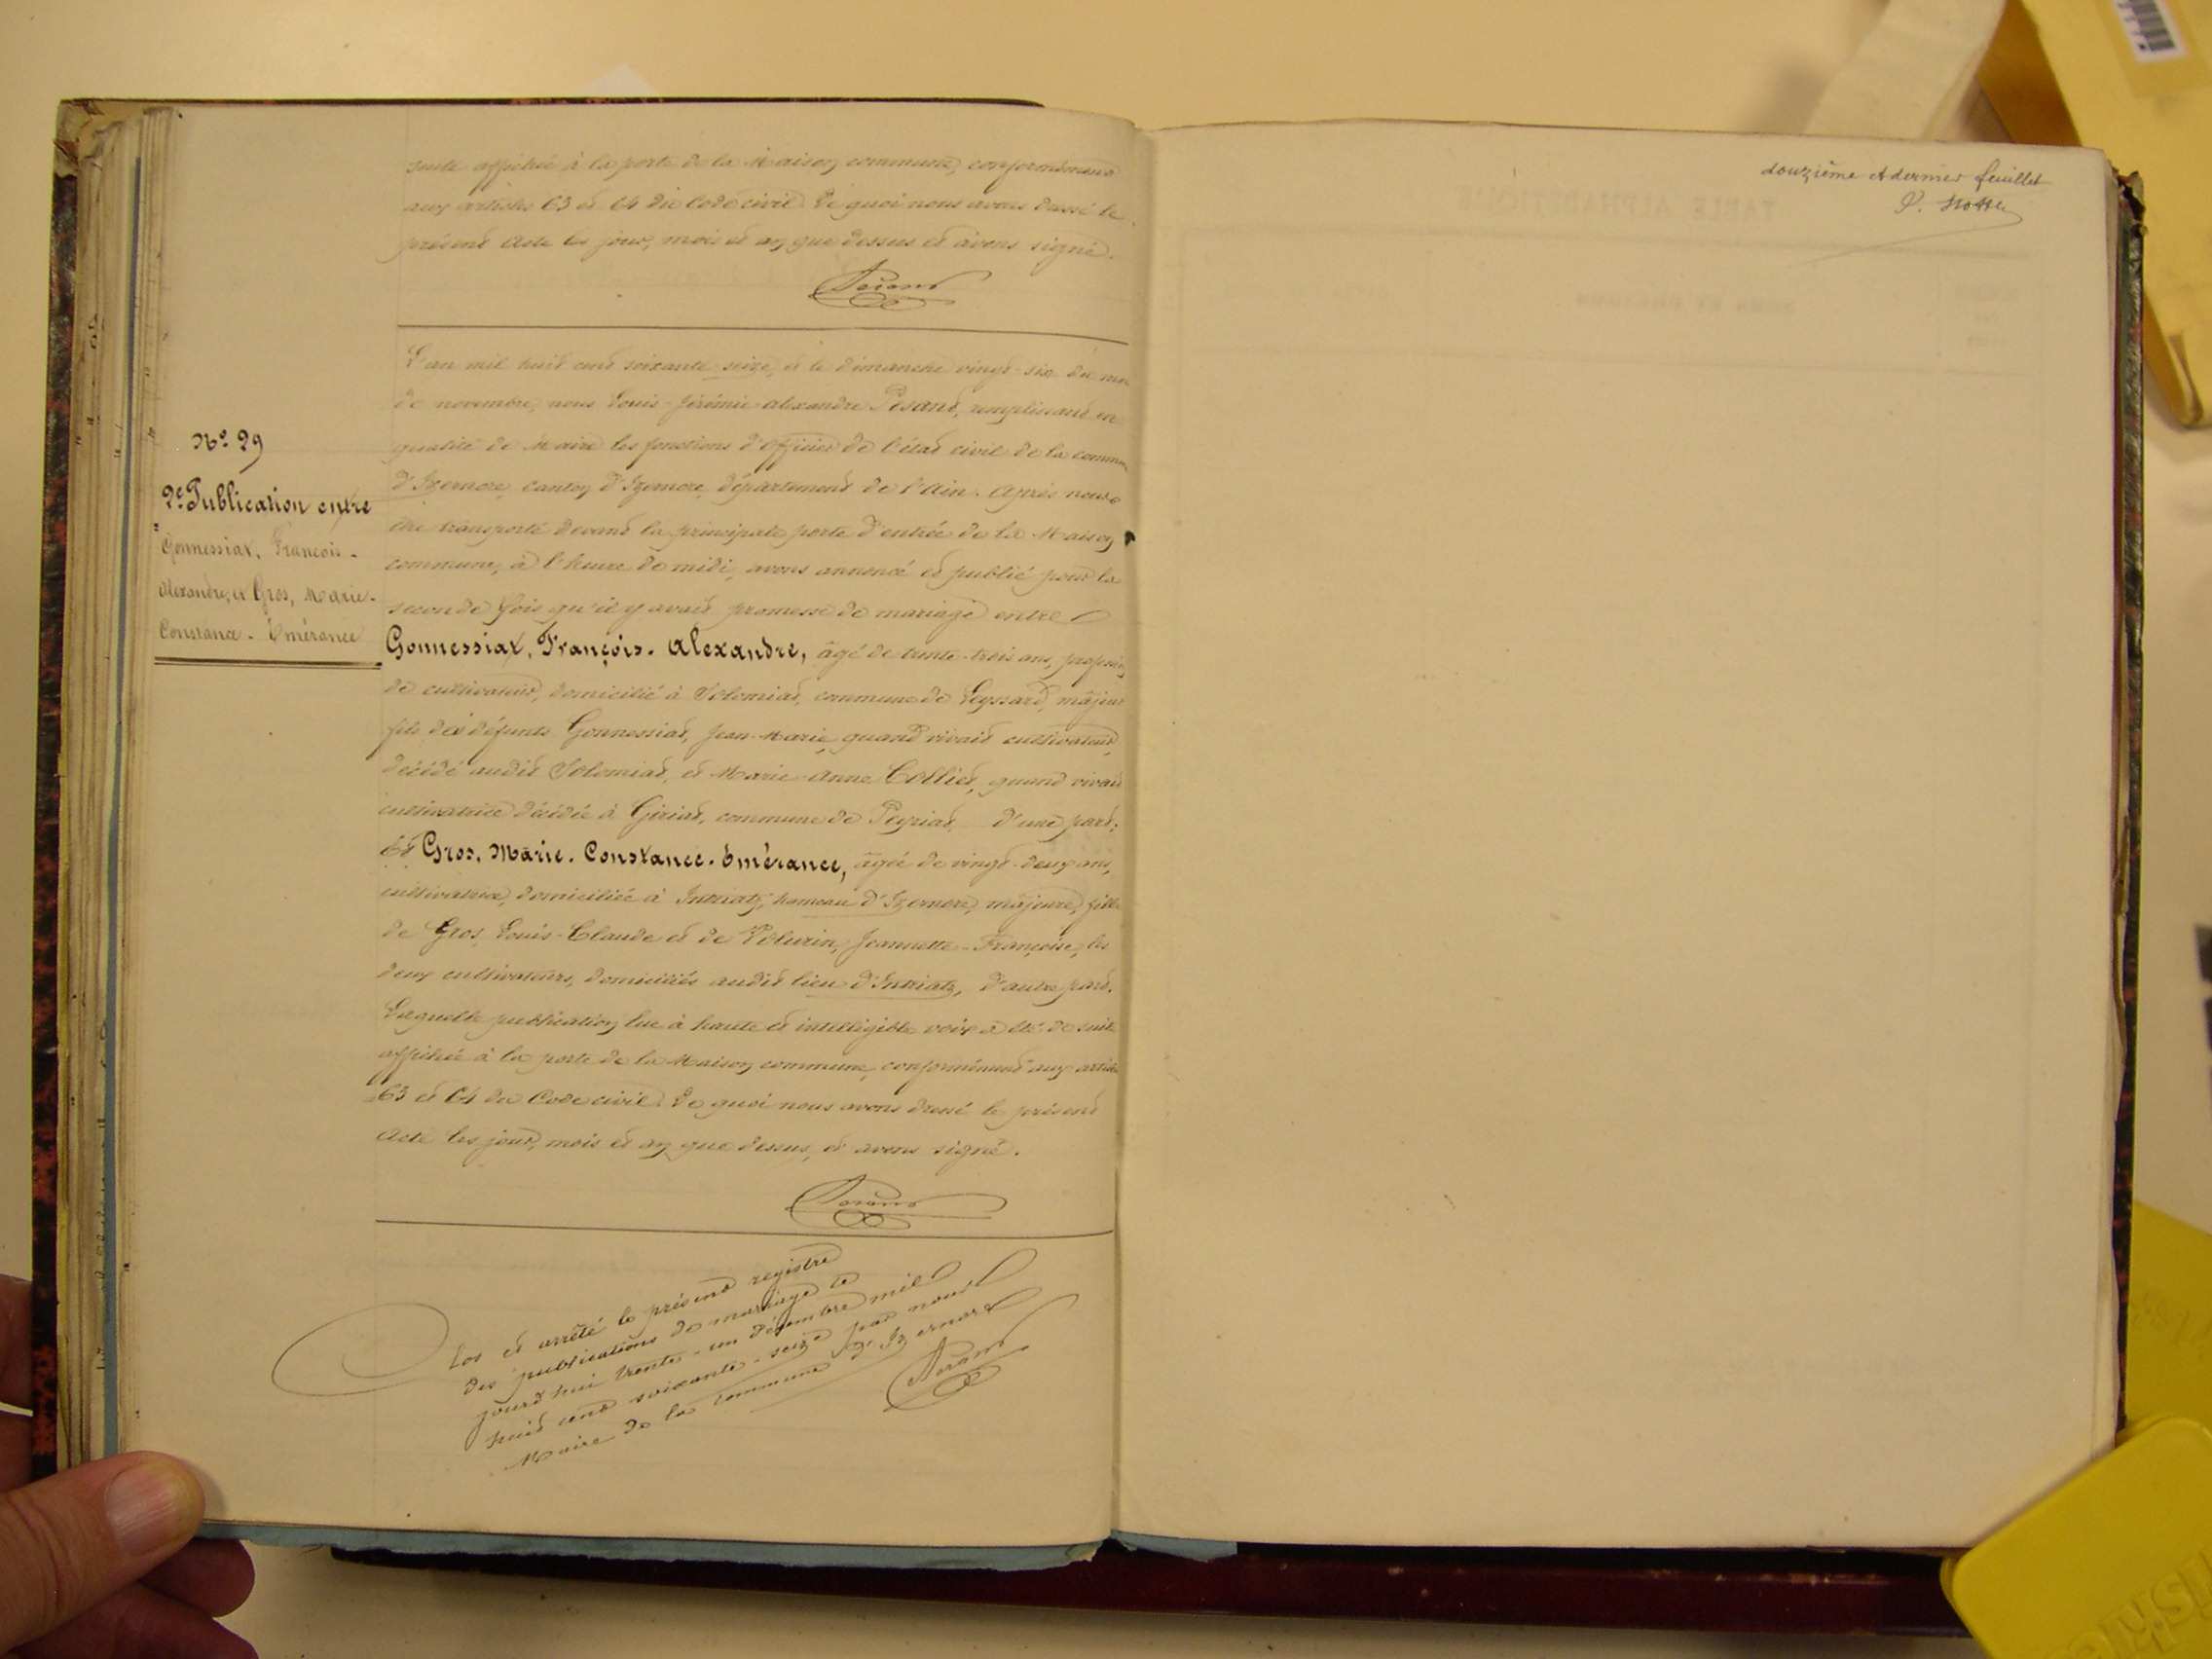 suite affichée à la porte de la Maison commune, conformément
aux articles 63 et 64 du Code civil. De quoi nous avons dressé le
présent Acte les jour, mois et an que dessus et avons signé.
N° 29
2e Publication entre
Gonnessiat, François-
Alexandre, et Gros, Marie-
Constance-Emérance
L'an mil huit cent soixante-seize, et le dimanche vingt-six du mois
de novembre, nous Louis-Jérémie-Alexandre remplissant en
qualité de Maire les fonctions d'Officier de l'état civil de la commune
d'Izernore, canton d'Izernore, département de l'Ain. Après nous
être transporté devant la principale porte d'entrée de la Maison
commune, à l'heure de midi, avons annoncé et publié pour la
seconde fois qu'il y avait promesse de mariage entre
Gonnessiat, François-Alexandre, âgé de trente-trois ans, profession
de cultivateur, domicilié à Solomiat, commune de Leyssard, majeur
fils des défunts Gonnessiat, Jean-Marie, quand vivait cultivateur,
décédé audit Solomiat, et Marie-Anne Collier, quand vivait
cultivatrice décédée à Giriat, commune de Peyriat, d'une part;
Et Gros, Marie-Constance-Emérance, âgée de vingt-deux ans,
cultivatrice, domiciliée à Intriat, hameau d'Izernore, majeure, fille
de Gros Louis-Claude et de Jeannette-Françoise, les
deux cultivateurs, domiciliés audit lieu d'Intriat, d'autre part.
Laquelle publication lue à haute et intelligible voix a été de suite
affichée à la porte de la Maison commune, conformément aux articles
63 et 64 du Code civil. De quoi nous avons dressé le présent
Acte les jour, mois et an que dessus, et avons signé.
Clos et arrêté le présent registre
des publications de mariage ce
jourd'hui trente-un décembre mil
huit cent soixante-seize par nous
Maire de la commune d'Izernore
douzième et dernier feuillet
TABLE ALPHABÉTIQUE